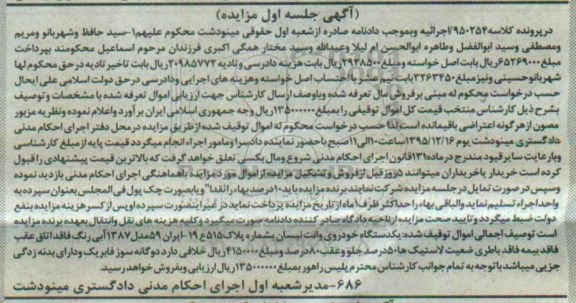 (آگهی جلسه اول مزایده)
درپرونده کلاسه ۹۵۰۲۵۴/اجرائیه وبموجب دادنامه صادره ازشعبه اول حقوقی مینودشت محکوم علیهم ۱-سید حافظ وشهربانو ومریم
ومصطفی وسید ابوالفضل وطاهره ابوالحسن ام لیلا وعبدالله وسید مختار همگی اکبری فرزندان مرحوم اسماعیل محکومند بپرداخت
مبلغ۶۵۲۶۹۰۰۰ریال بابت اصل خواسته ومبلغ۲۹۳۸۵۰۰ریال بابت هزینه دادرسی وتادیه ۲۰۹۸۵۷۷۲ریال بابت تاخیر تادیه در حق محکوم لها
شهربانوحسینی ونیزمبلغ۳۲۶۳۴۵۰بابت نیم عشر با احتساب اصل خواسته وهزینه های اجرایی ودادرسی در حق دولت اسلامی علی ایحال
حسب درخواست محکوم له مبنی برفروش مال تعرفه شده وباوصف ارسال کارشناس جهت ارزیابی اموال تعرفه شده با مشخصات و توصیف
بشرح ذیل کارشناس منتخب قیمت کل اموال توقیفی را بمبلغ۱۳۵۰۰۰۰۰۰ریال وجه جمهوری اسلامی ایران برآورد واعلام نموده ونظریه مزبور
مصون ازهرگونه اعتراضی باقیمانده است لذا حسب درخواست محکوم له اموال توقیف شده ازطریق مزایده در محل دفتر اجرای احکام مدنی
دادگستری مینودشت یوم ۱۳۹۵/۱۲/۱۶ساعت۱۰الی۱۱صبح باحضور نماینده دادسرا ومامور اجراء انجام میگردد قیمت پایه از مبلغ کارشناسی
وبارعایت سایر قیود مندرج در ماده۱۳۱قانون اجرای احکام مدنی شروع ومال بکسی تعلق خواهد گرفت که بالاترین قیمت پیشنهادی را قبول
کرده است خریدار یاخریداران میتوانند ۵روز قبل ازفروش وتشکیل مزایده از اموال مورد مزایده باهماهنگی اجرای احکام مدنی بازدید نموده
وسپس در صورت تمایل در جلسه مزایده شرکت نمایند برنده مزایده باید ۱۰درصد بهاء رانقدا" وبصورت چک پول فی المجلس بعنوان سپرده به
واحد اجراء تسلیم نماید والباقی بهاء را حداکثر ظرف ۱ماه از تاریخ مزایده پرداخت نماید در غیر اینصورت سپرده اوپس از کسر هزینه مزایده بنفع
دولت ضبط میگردد وتایید صحت مزایده از ناحیه دادگاه صادر کننده دادنامه صورت میگیرد وکلیه هزینه های نقل وانتقال بعهده برنده مزایده
است توصیف اجمالی اموال توقیف شده:یکدستگاه خودروی وانت نیسان بشماره پلاک۵۱۵ع۱۹-ایران ۵۹مدل۱۳۸۷آبی رنگ فاقد اتاق عقب
فاقد بیمه فاقد باطری وضعیت لاستیک ها ۵۰درصد جلو وعقب ۸۰درصد ومبلغ ۴۱۵۰۰۰۰ریال خلافی دارد دوگانه سوز فابریک ودارای بدنه زدگی
جزیی میباشد باتوجه به تمام جوانب کارشناس محترم پلیس راهور بمبلغ۱۳۵۰۰۰۰۰۰ریال ارزیابی وبفروش خواهد رسید.
۶۸۶-مدیر شعبه اول اجرای احکام مدنی دادگستری مینودشت